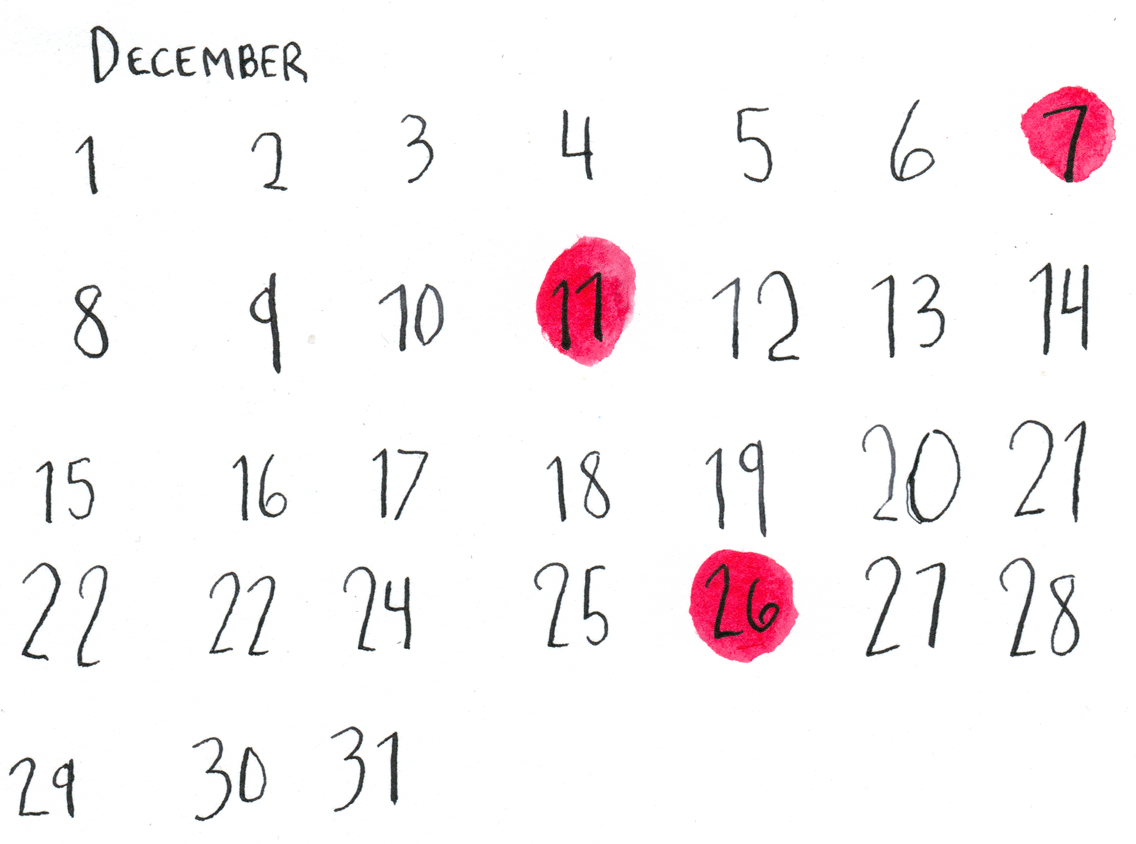 DECEMBER
1 2 3 4 5 6 7
8 9 10 11 12 13 14
15 16 17 18 19 20 21
22 22 24 25 26 27 28
29 30 31